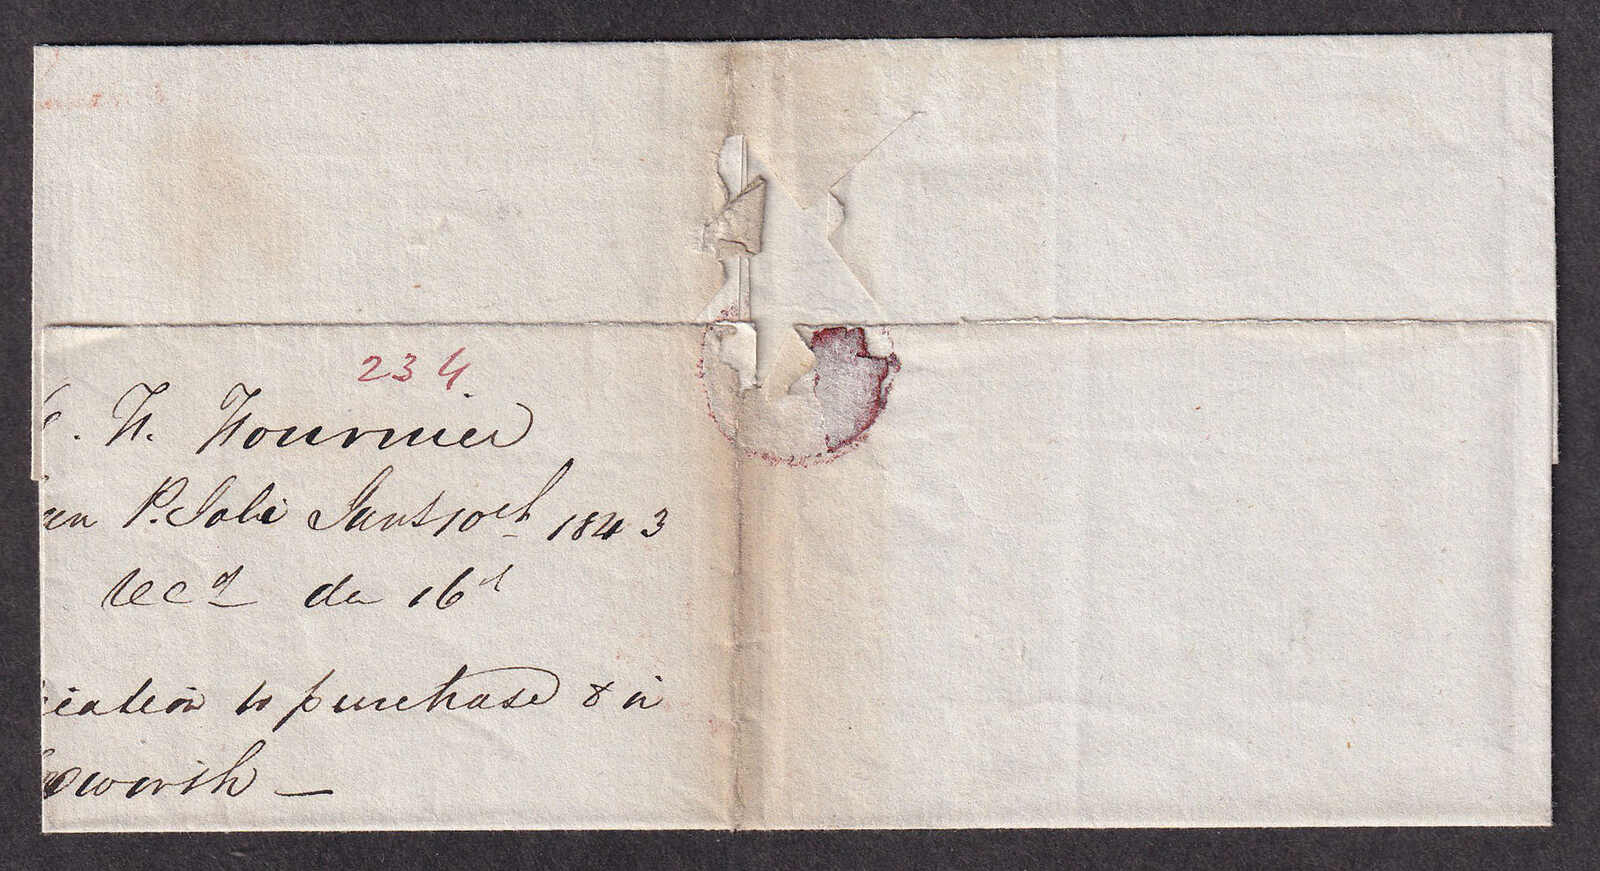 234
. N. Fournier
P. Joli Jany 10th 1843
Recd do 16th
ication to purchase & in
worth —